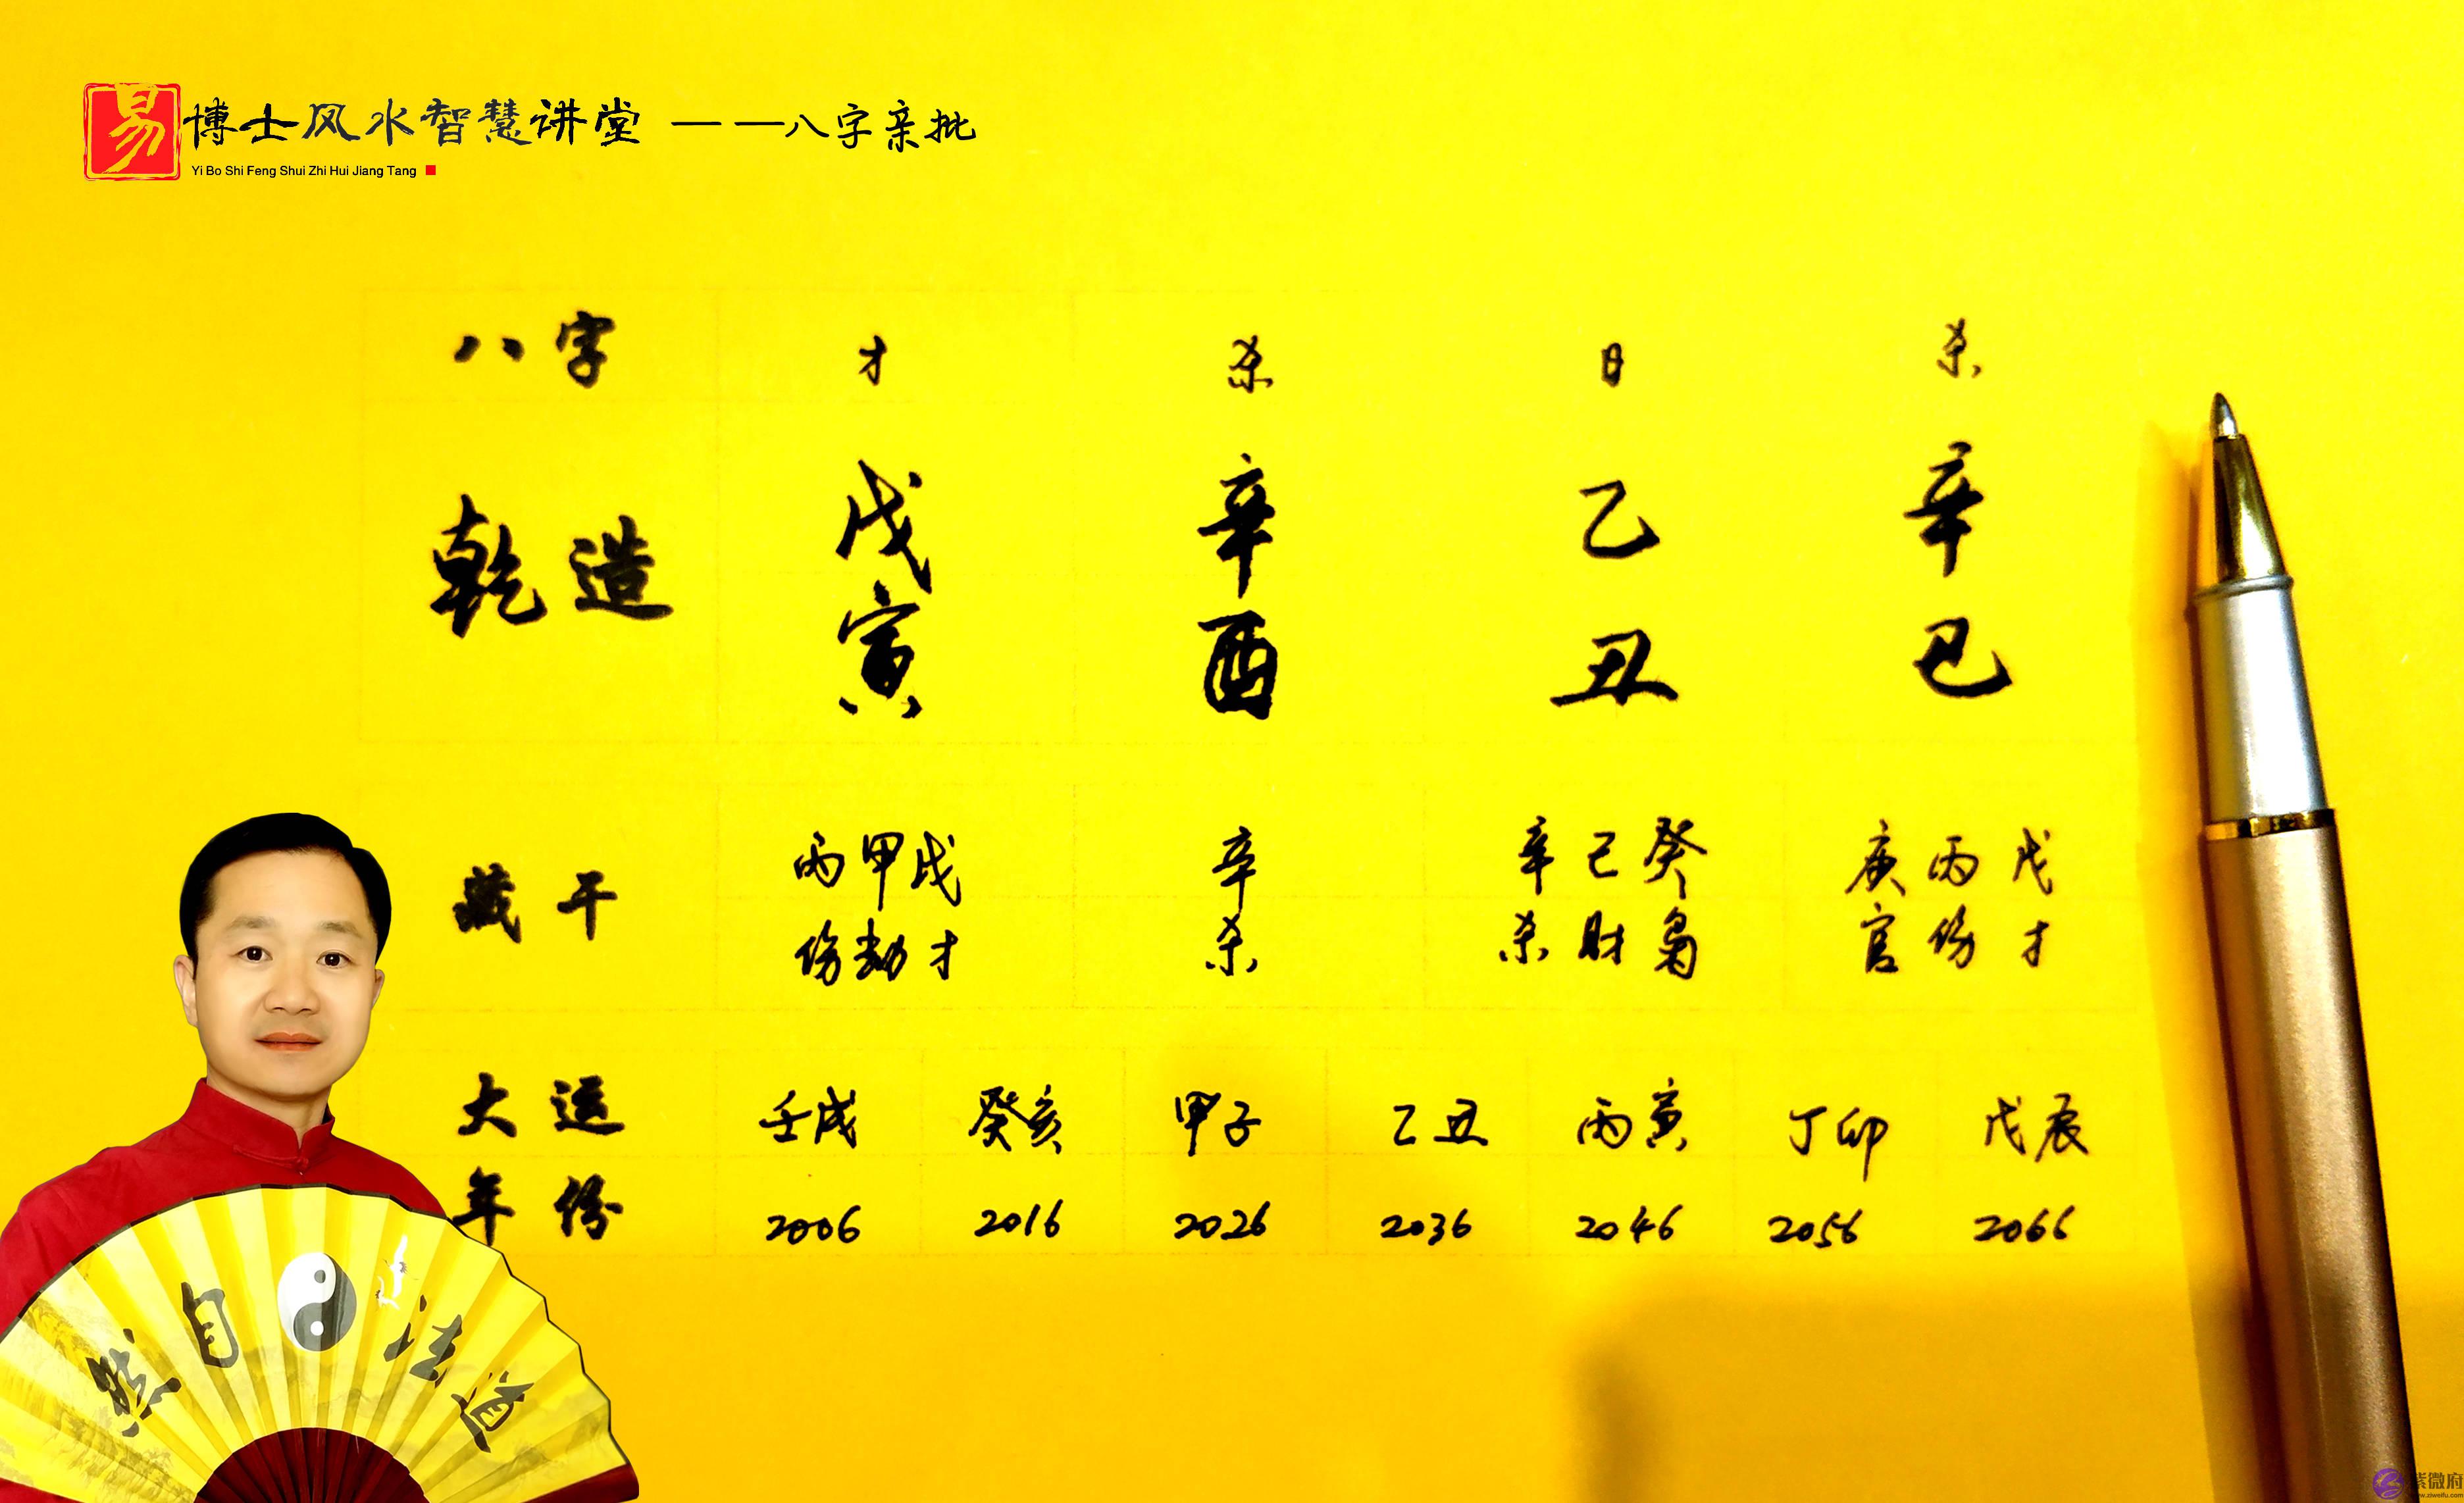 易博士风水智慧讲堂 ——八字亲批
Yi Bo Shi Feng Shui Zhi Hui Jiang Tang
八字 才 杀 日 杀
乾造 戊 辛 乙 辛
寅 酉 丑 巳
藏干 丙甲戊 辛 辛己癸 庚丙戊
伤劫才 杀 杀财枭 官伤才
大运 壬戌 癸亥 甲子 乙丑 丙寅 丁卯 戊辰
年份 2006 2016 2026 2036 2046 2056 2066
然自法道
紫微府
www.ziweifu.com